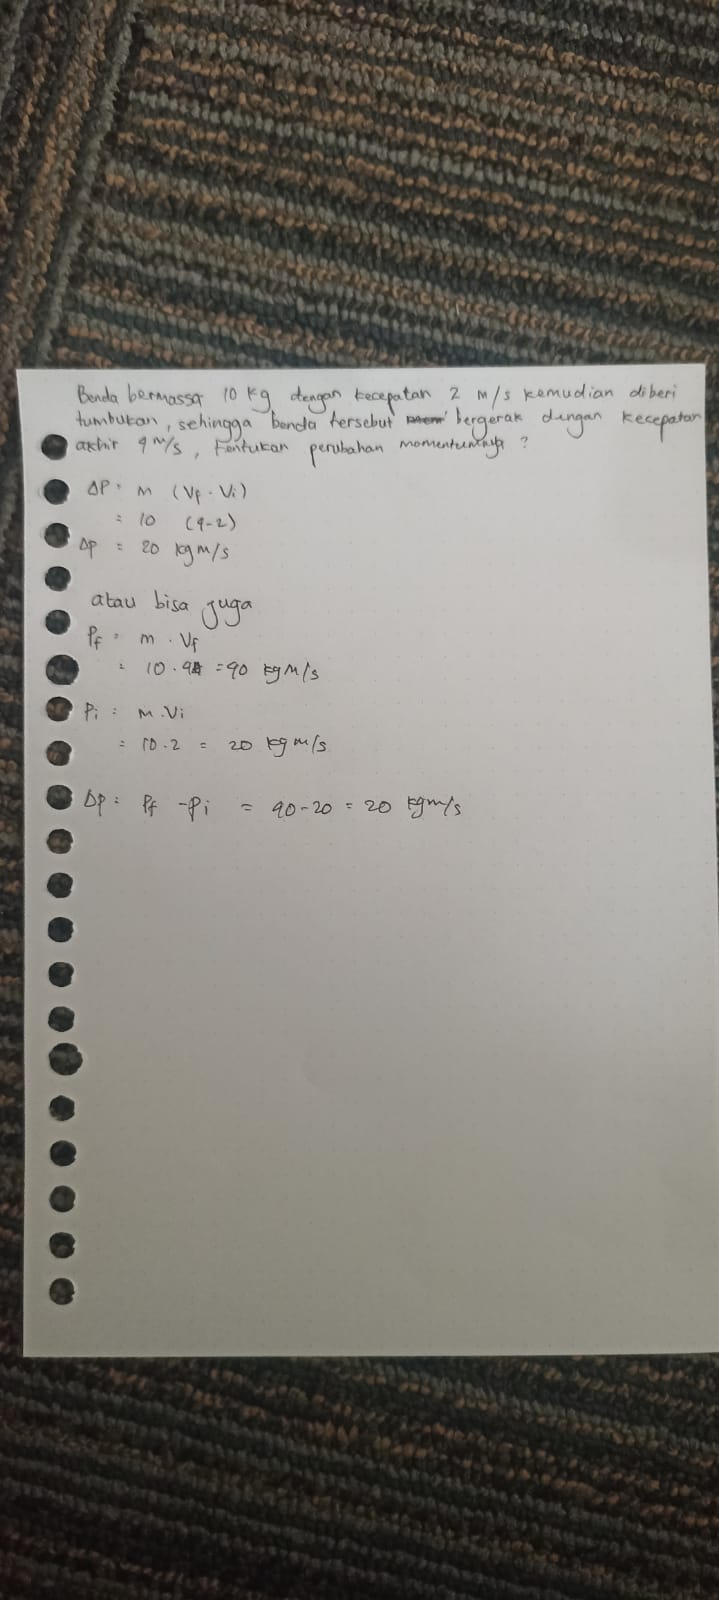 Benda bermassa 10 kg dengan kecepatan 2 m/s kemudian diberi
tumbukan, sehingga benda tersebut bergerak dengan kecepatan
akhir 9 m/s, Tentukan perubahan momentumnya ?
ΔP = m (Vf - Vi)
= 10 (9-2)
Δp = 20 kg m/s
atau bisa juga
Pf = m . Vf
= 10 . 9 = 90 kg m/s
Pi = m . Vi
= 10 . 2 = 20 kg m/s
Δp = Pf - Pi = 90 - 20 = 20 kg m/s